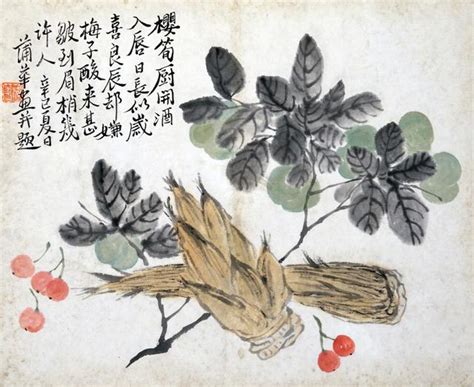 櫻筍厨開酒
入唇日長似歲
喜良辰却嫌
梅子酸来甚
皺到眉梢幾
許人辛巳夏日
蒲華画并題